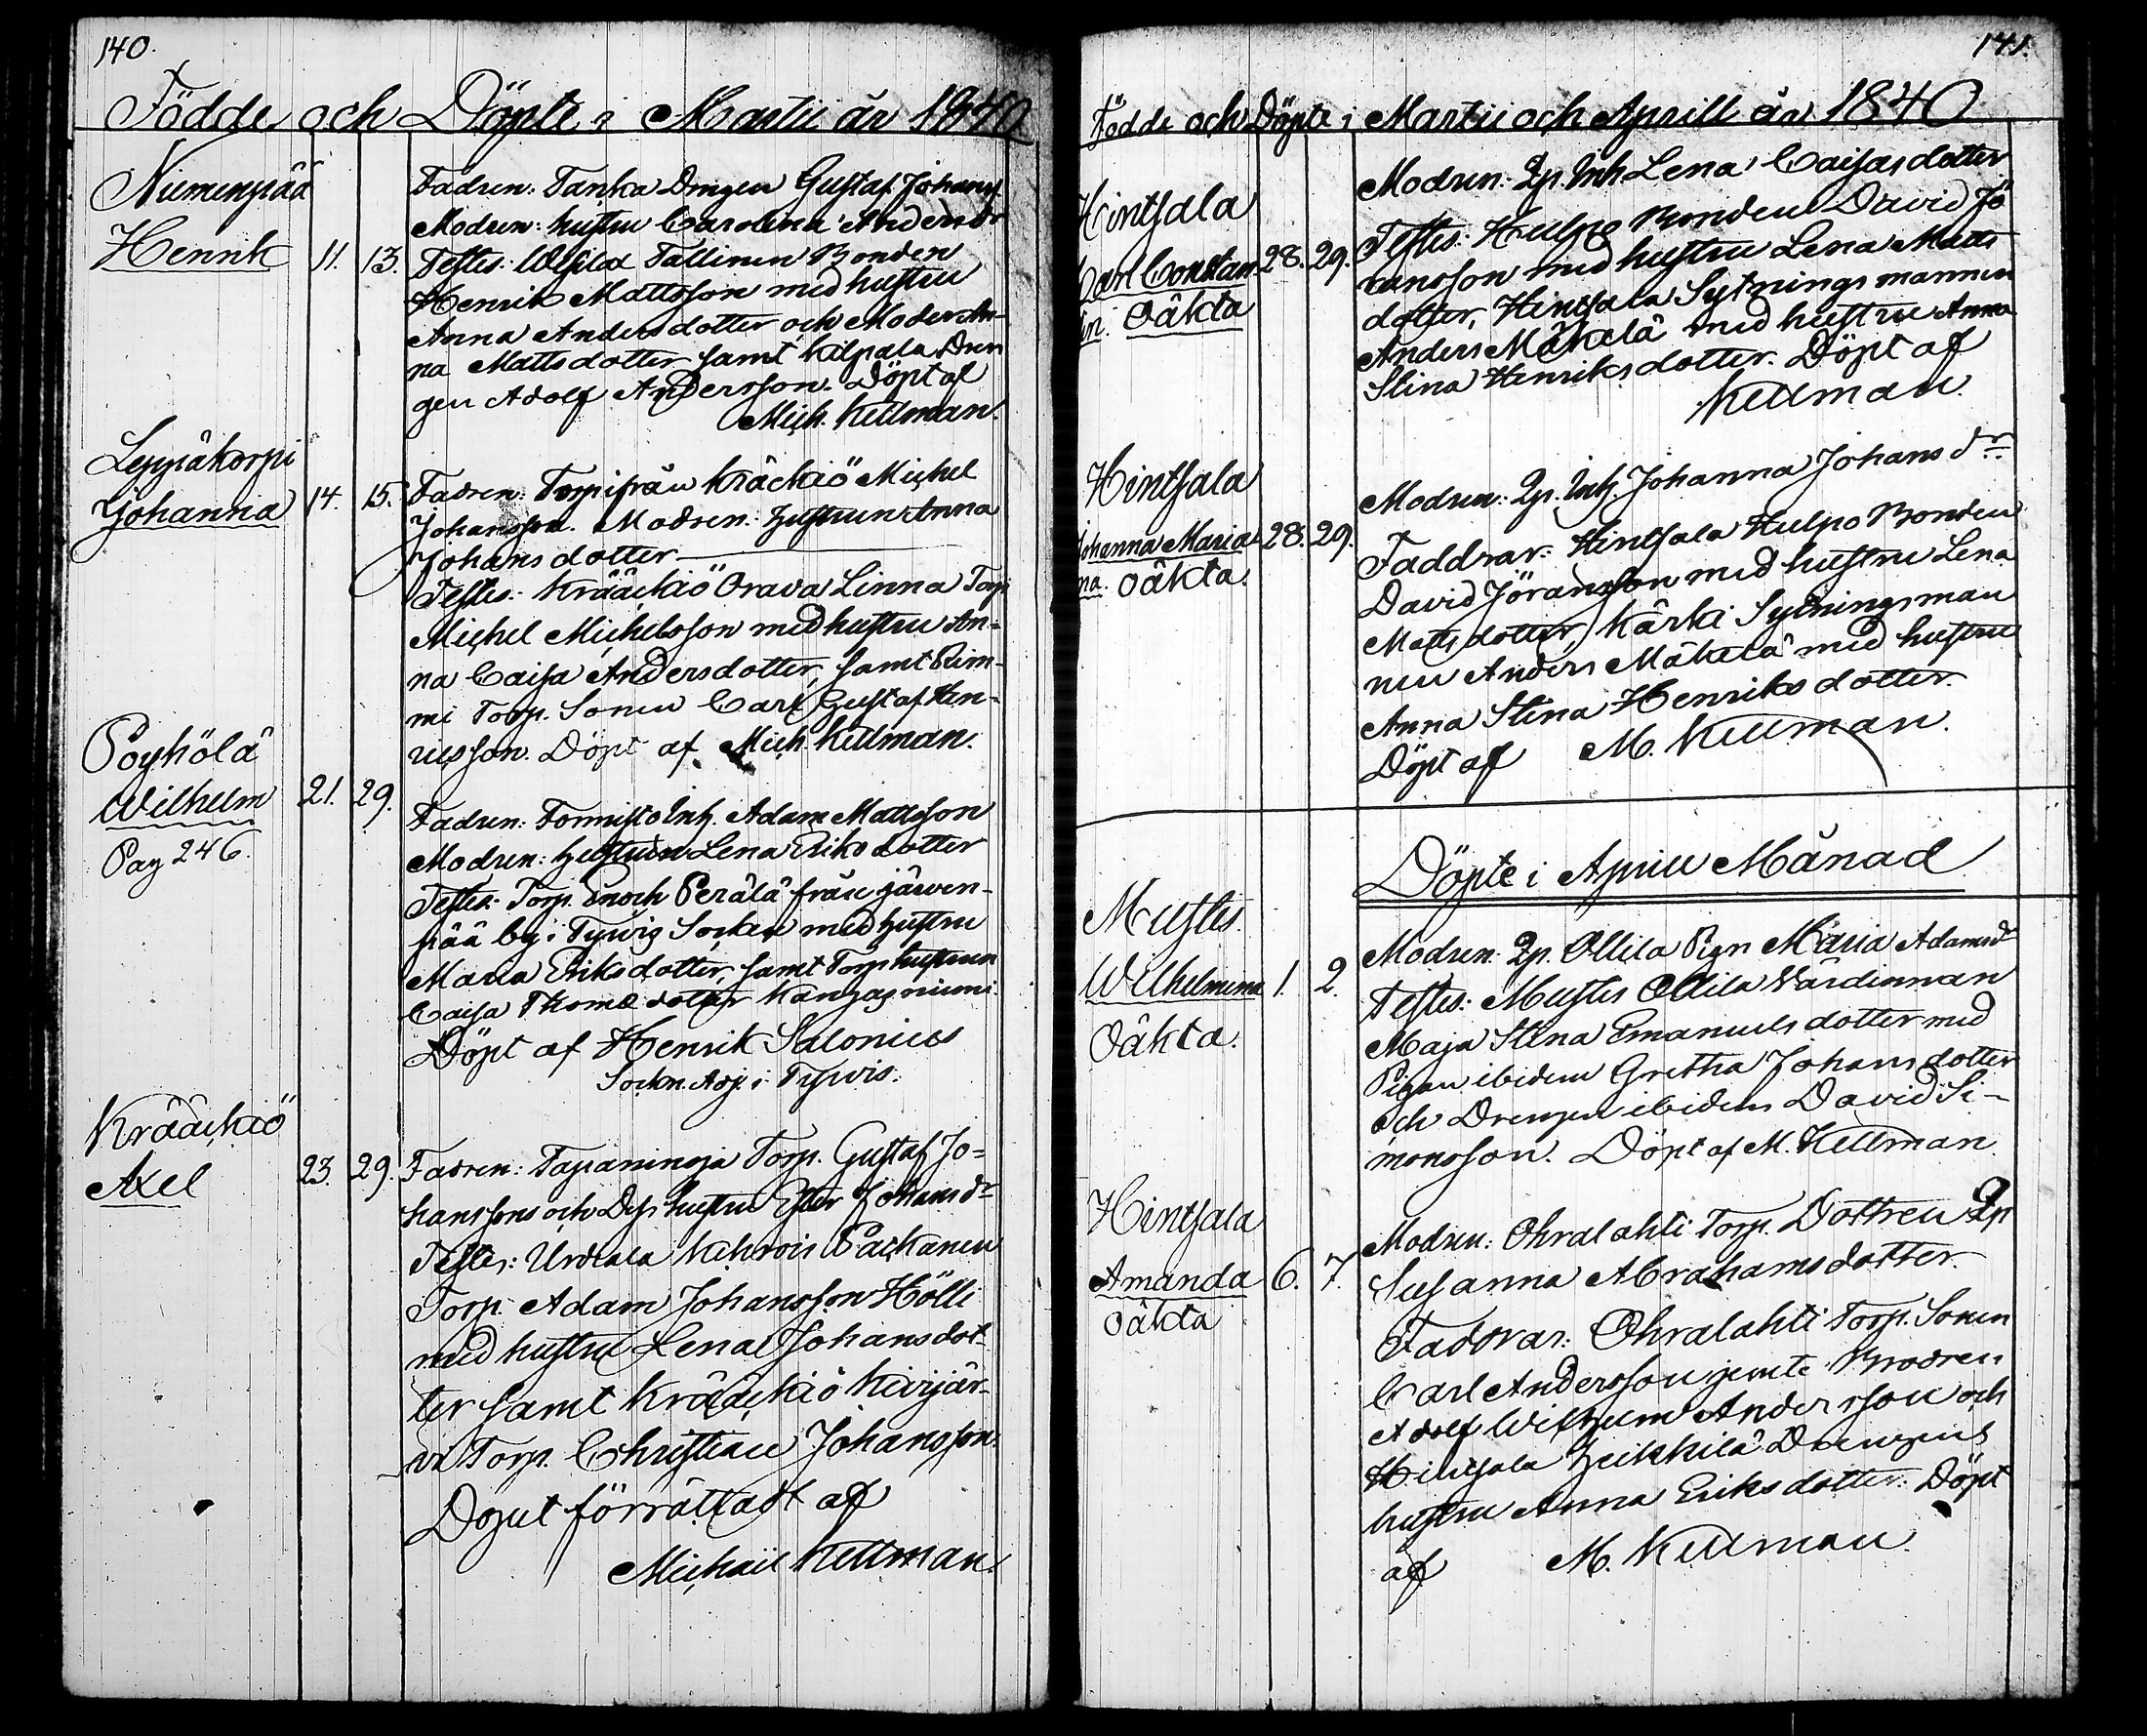 140.
Födde och Döpte i Martii år 1840
Niemenpää
Henrik 11. 13.
Fadren: Tanka Drengen Gustaf Johans
Modren: hustru Carolina Andersdr
Testes: Tallinen Bonden
Henrik Mattsson med hustru
Anna Andersdotter och Moder An-
na Mattsdotter samt Kilpala Dren
gen Adolf Andersson. Döpt af
Mich. Kellman.
Leppäkorpi
Johanna 14. 15.
Fadren: Torp ifrån Kräckiö Michel
Johansson. Modren: Hustrun Anna
Johansdotter
Testes: Krääckiö Orava Linna Torp
Michel Michelsson med hustru An-
na Caisa Andersdotter, samt Rim-
mi Torp. Sonen Carl Gustaf Hen-
ricsson. Döpt af Mich. Kellman.
Pöyhölä
Wilhelm 21. 29.
Pag 246.
Fadren: Tormisto Inh. Adam Mattsson
Modren: Hustrun Lena Eriksdotter
Testes: Torp. Enoch Perälä från järwen-
pää by i Tyrvis Socken med Hustru
Maria Eriksdotter, samt Torp hustrun
Caisa Thomædotter Kangasniemi
Döpt af Henrik Salonius
Sockn. Adj. i Tyrvis.
Krääckiö
Axel 23. 29.
Fadren: Tapaninoja Torp. Gustaf Jo-
hanssons och Dess hustru Ester Johansdr
Testes: Urdiala Kehrois Packanen
Torp. Adam Johansson Hölli
med hustru Lena Johansdot
ter samt Krääckiö Kivijär-
vi Torp. Christian Johansson.
Dopet förrättadt af
Michaël Kellman.
141.
Födde och Döpte i Martii och Aprill år 1840
Hintsala
Carl Constan 28. 29.
tin. Oäkta
Modren: Qp. Inh Lena Caisasdotter
Testes: Hulpo Bonden David Jö
ransson med hustru Lena Matts
dotter, Hintsala Sytningsmannen
Anders Mäkelä med hustru Anna
Stina Henriksdotter. Döpt af
Kellman.
Hintsala
Johanna Maria 28. 29.
na. Oäkta.
Modren: Qp. Inh. Johanna Johansdr.
Faddrar: Hintsala Hulpo Bonden
David Jöransson med hustru Lena
Mattsdotter, Kärki Sytningsman
nen Anders Mäkelä med hustru
Anna Stina Henriksdotter.
Döpt af M. Kellman.
Döpte i Aprill Månad
Mustis
Wilhelmina 1. 2.
Oäkta.
Modren: Qp. Ollila Pign Maria Adamsdr
Testes: Mustis Ollila Värdinnan
Maja Stina Emanuelsdotter med
Pigan ibidem Gretha Johansdotter
och Drengen ibidem David Si-
monsson. Döpt af M. Kellman
Hintsala
Amanda 6. 7.
Oäkta
Modren: Ohralahti Torp. Dottren Qp
Susanna Abrahamsdotter.
Faddrar: Ohralahti Torp. Sonen
Carl Andersson jemte Brodren
Adolf Wilhelm Andersson och
Hintsala Heikkilä Drengens
hustru Anna Eriksdotter. Döpt
af M. Kellman.